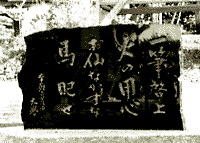 一筆啓上
火の用心
お仙なかすな
馬肥せ